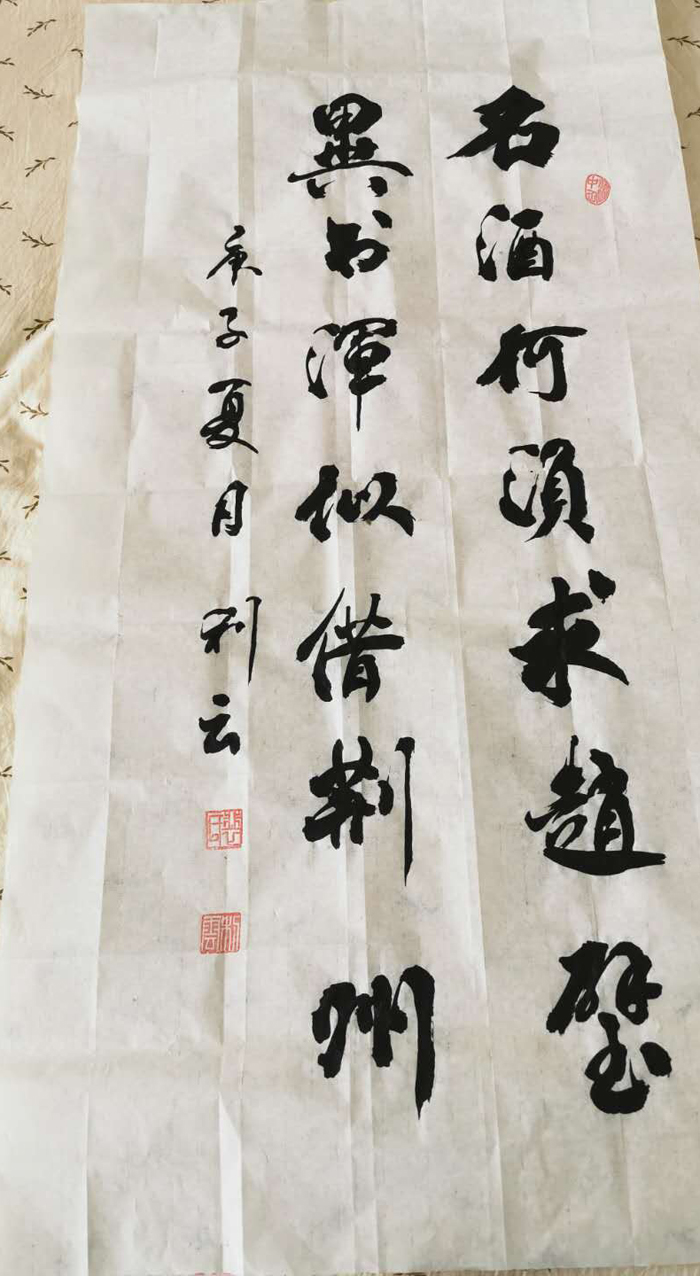 名酒何須求趙璧
異书渾似借荆州
庚子夏月 利云
利雲